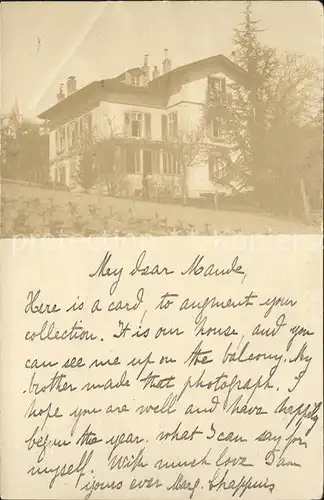 My dear Maude,
Here is a card, to augment your
collection. It is our house, and you
can see me up on the balcony. My
brother made that photograph. I
hope you are well and have happily
begun the year. what I can say for
myself. With much love I am
yours ever Marg. Chappuis